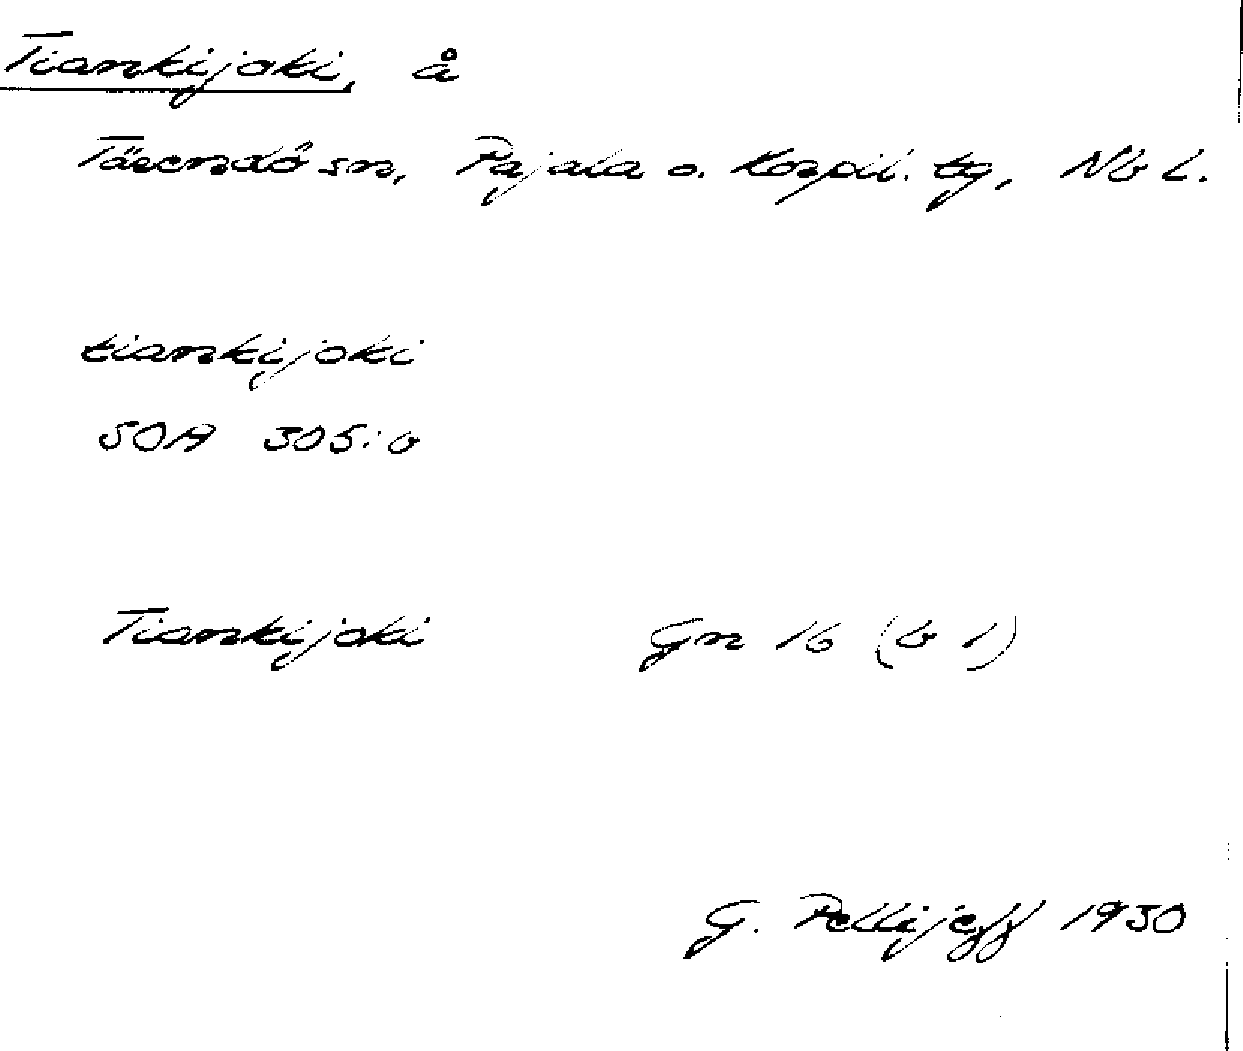 Tiankijoki, å
Tärendö sn, Pajala o. Korpil. tg, Nb L.
tiankijoki
SOA 305:b
Tiankijoki Gn 16 (b 1)
G. Pellijeff 1950